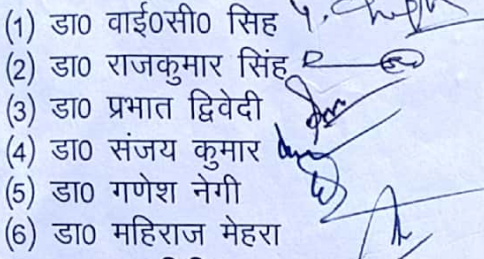 (1) डा० वाई०सी० सिह
(2) डा० राजकुमार सिंह
(3) डा० प्रभात द्विवेदी
(4) डा० संजय कुमार
(5) डा० गणेश नेगी
(6) डा० महिराज मेहरा